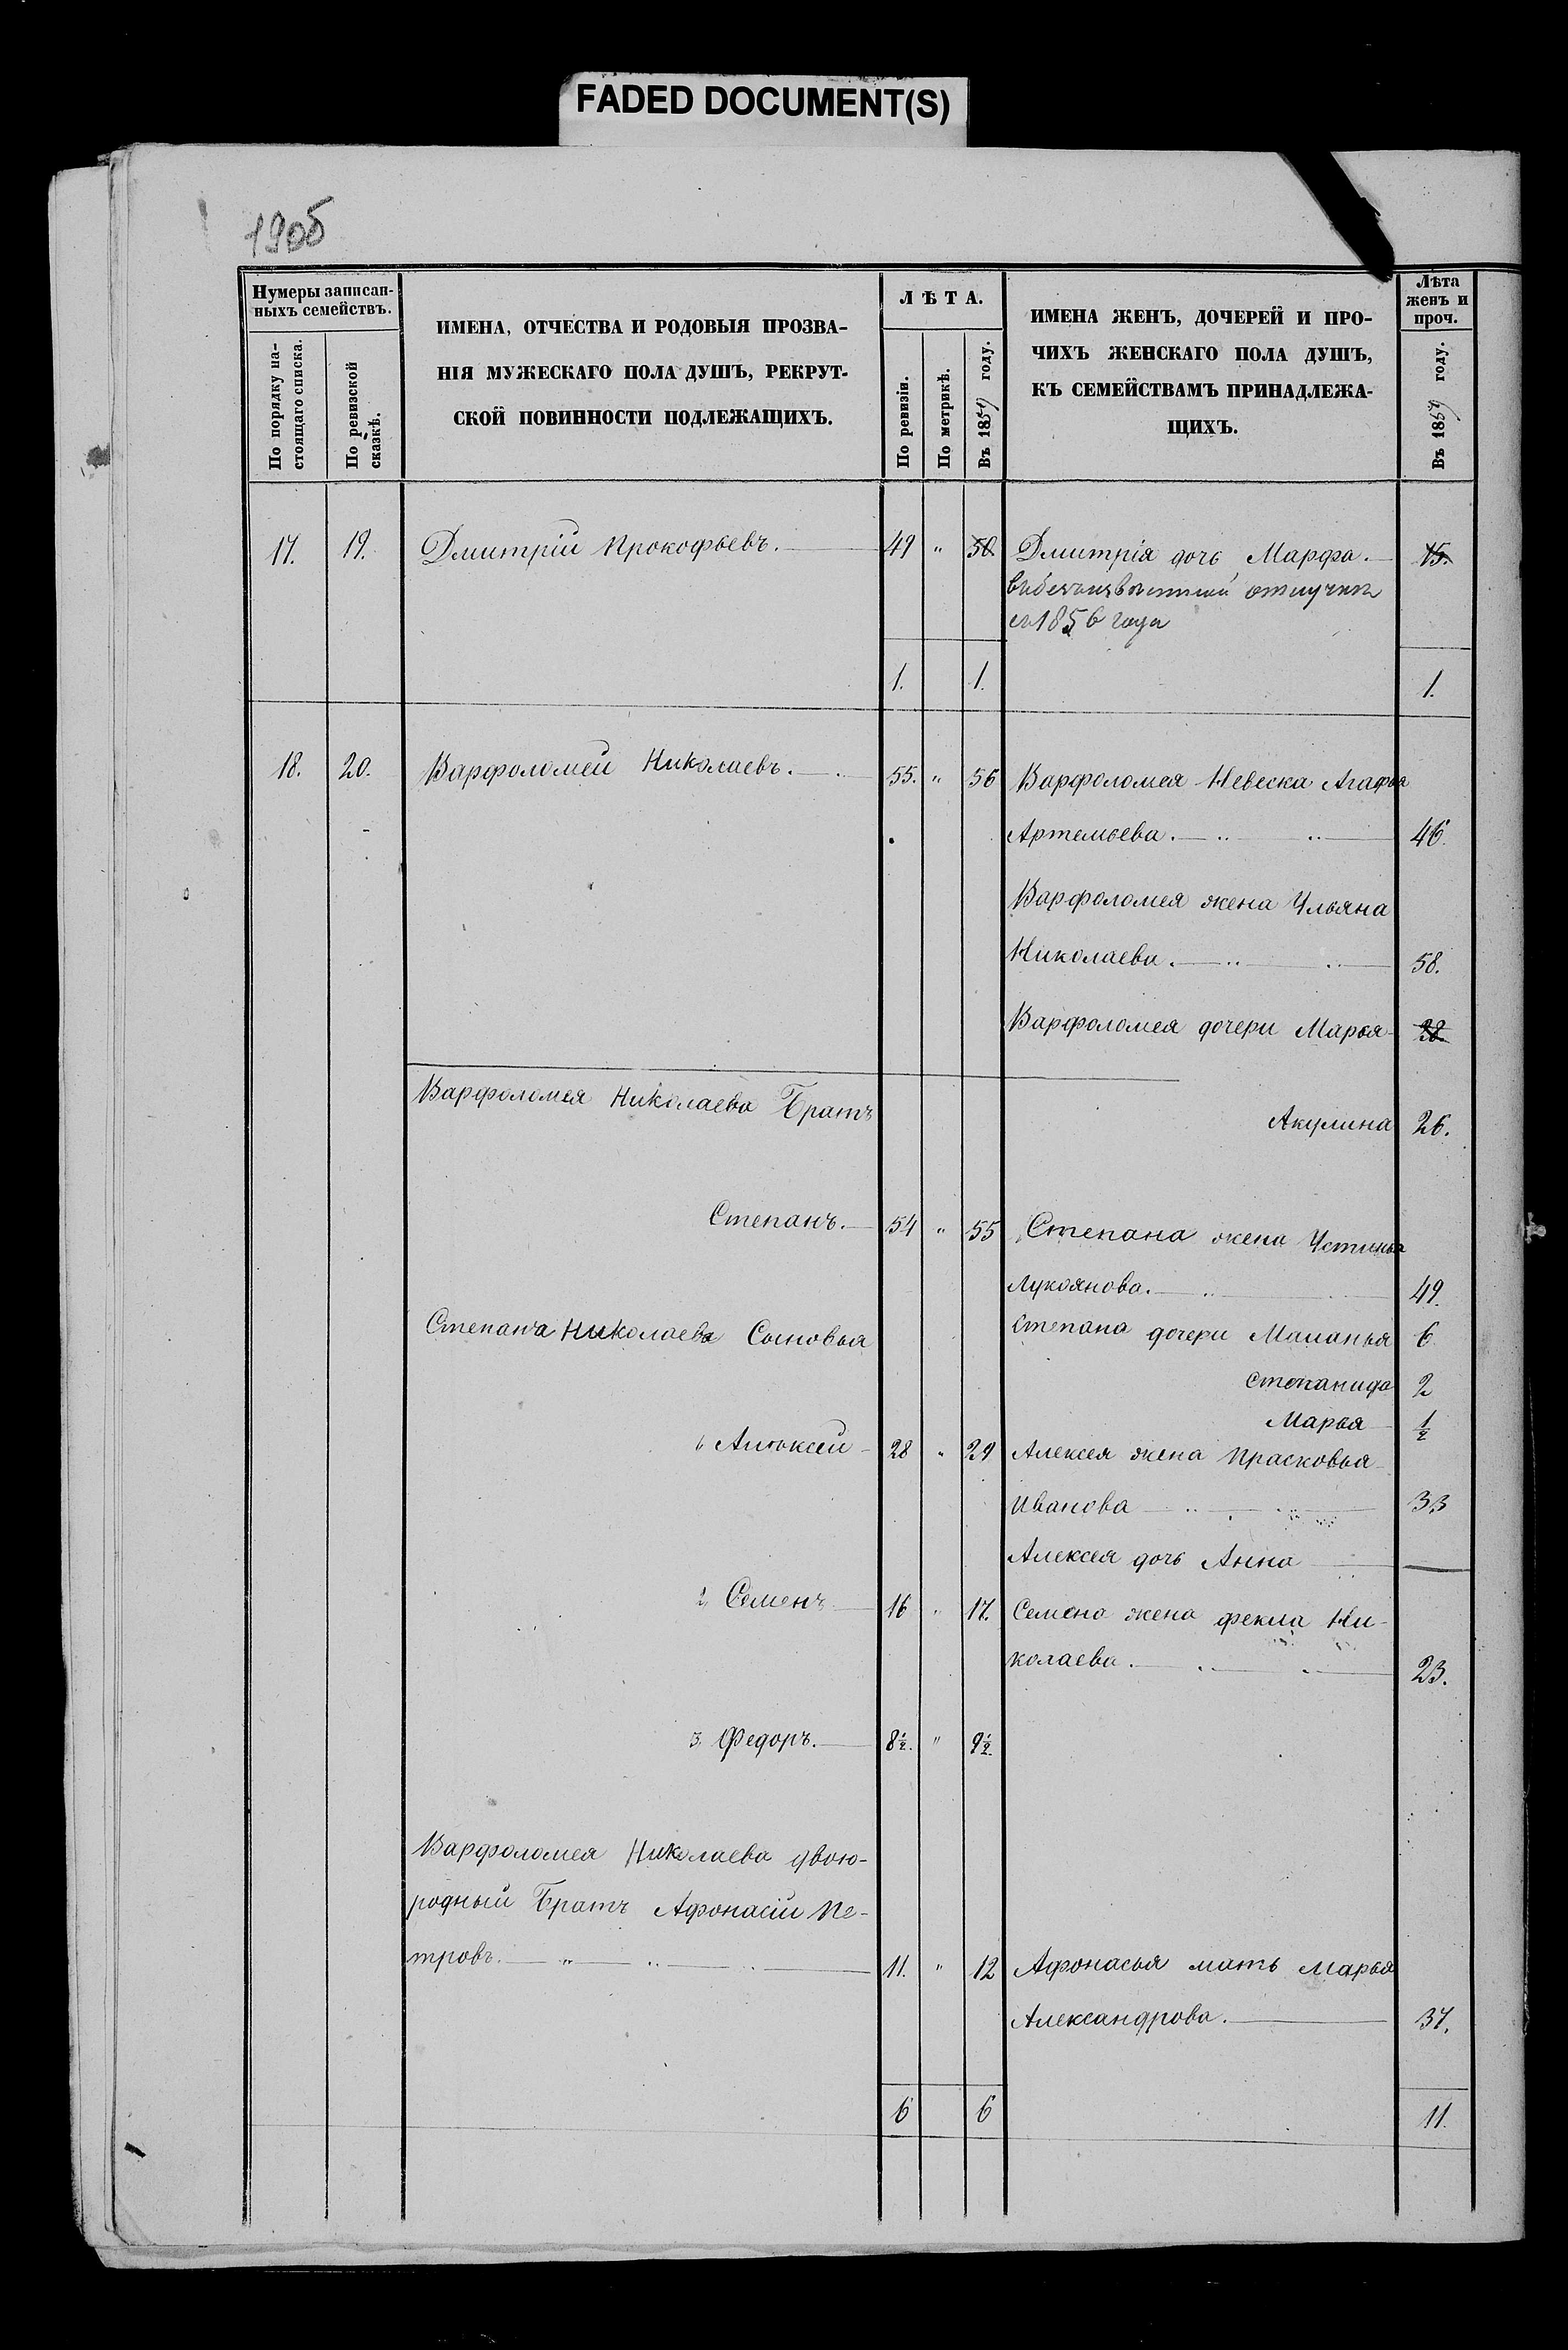 FADED DOCUMENT(S)
1905
Нумеры записан-
ныхъ семействъ.
По порядку на-
стоящаго списка.
По ревизской
сказкѣ.
ИМЕНА, ОТЧЕСТВА И РОДОВЫЯ ПРОЗВА-
НІЯ МУЖЕСКАГО ПОЛА ДУШЪ, РЕКРУТ-
СКОЙ ПОВИННОСТИ ПОДЛЕЖАЩИХЪ.
ЛѢТА.
По ревизіи.
По метрикѣ.
Въ 1859 году.
ИМЕНА ЖЕНЪ, ДОЧЕРЕЙ И ПРО-
ЧИХЪ ЖЕНСКАГО ПОЛА ДУШЪ,
КЪ СЕМЕЙСТВАМЪ ПРИНАДЛЕЖА-
ЩИХЪ.
Лѣта
женъ и
проч.
Въ 1859 году.
17. 19. Дмитрій Прокофьевъ. 49 " 50. Дмитрія дочь Марфа. 15.
отлучки
съ 1856 года
1. 1. 1.
18. 20. Варфоломей Николаевъ. 55. " 56 Варфоломея Невеска Агафья
Артемьева. 46.
Варфоломея жена Ульяна
Николаева. 58.
Варфоломея дочери Марья 28.
Варфоломея Николаева Братъ
Акулина 26.
Степанъ. 54 " 55 Степана жена Устинья
Лукоянова. 49.
Степана Николаева Сыновья
Степана дочери Маланья 6
Степанида 2
Марья 1/2
1 Алексей 28 " 29 Алексея жена Прасковья
Иванова 33
Алексея дочь Анна —
2. Семенъ 16 " 17. Семена жена Фекла Ни-
колаева. 23.
3. Федоръ. 8 1/2. " 9 1/2.
Варфоломея Николаева двою-
родный Братъ Афонасій Пе-
тровъ. 11. " 12 Афонасья мать Марья
Александрова. 37.
6 6 11.